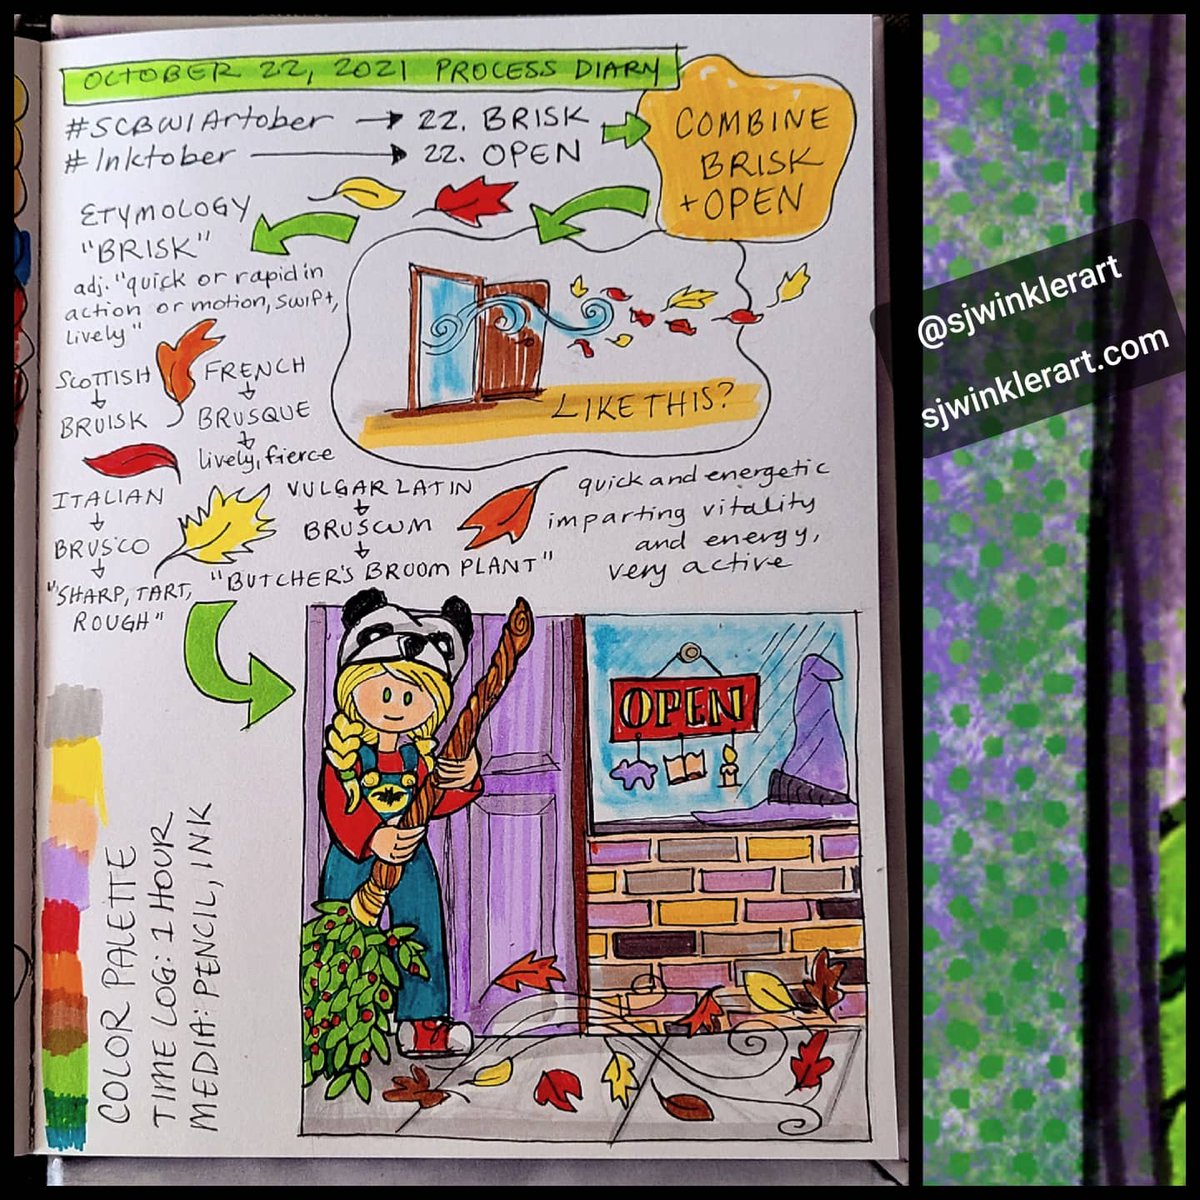 OCTOBER 22, 2021 PROCESS DIARY
#SCBWIArtober → 22. BRISK
#Inktober → 22. OPEN
COMBINE
BRISK
+ OPEN
ETYMOLOGY
"BRISK"
adj. "quick or rapid in
action or motion, swift,
lively"
LIKE THIS?
SCOTTISH
↓
BRUISK
FRENCH
↓
BRUSQUE
↓
lively, fierce
ITALIAN
↓
BRUSCO
↓
"SHARP, TART,
ROUGH"
VULGAR LATIN
↓
BRUSCUM
↓
"BUTCHER'S BROOM PLANT"
quick and energetic
imparting vitality
and energy,
very active
OPEN
COLOR PALETTE
TIME LOG: 1 HOUR
MEDIA: PENCIL, INK
@sjwinklerart
sjwinklerart.com